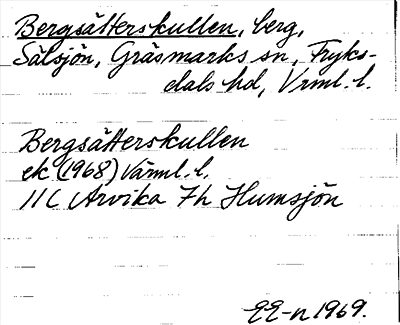 Bergsätterskullen, berg,
Sälsjön, Gräsmarks sn, Fryks-
dals hd, Vrml. l.
Bergsätterskullen
ek (1968) Värml. l.
11C Arvika 7h Humsjön
EE-n 1969.